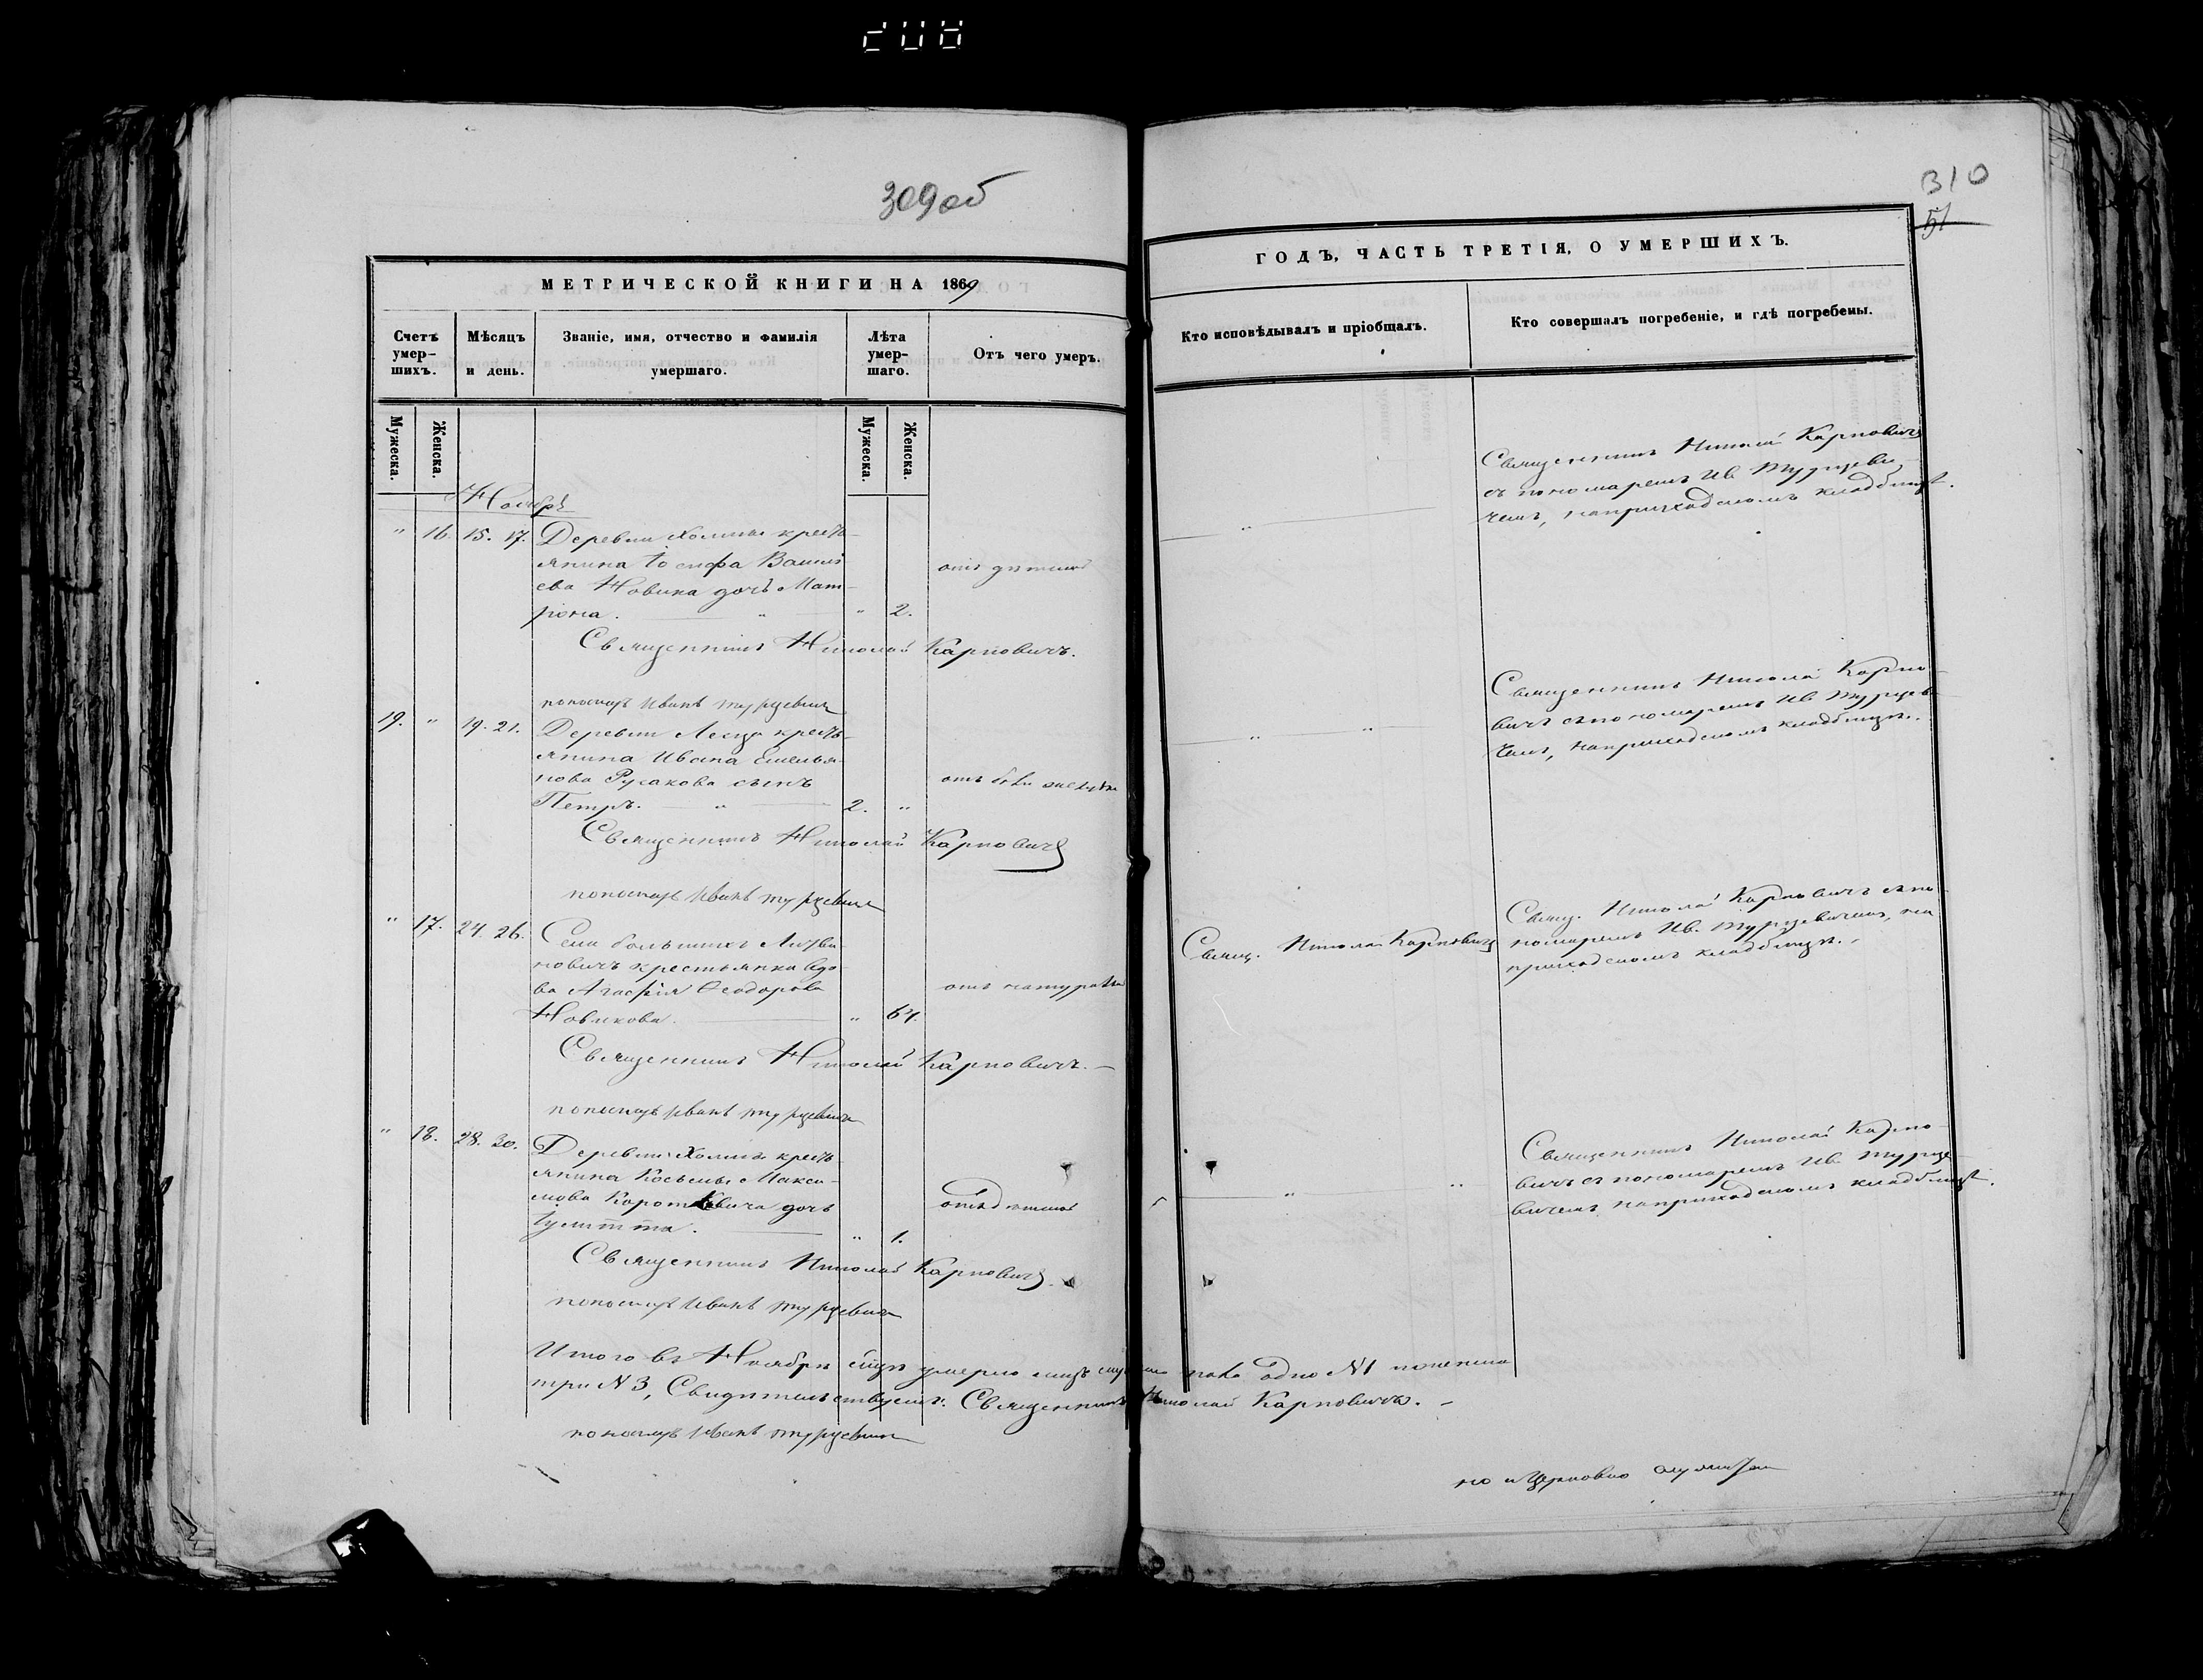 309 об
310
51
МЕТРИЧЕСКОЙ КНИГИ НА 1869
ГОДЪ, ЧАСТЬ ТРЕТІЯ, О УМЕРШИХЪ.
Счетъ умер-шихъ.
Мѣсяцъ и день.
Званіе, имя, отчество и фамилія умершаго.
Лѣта умер-шаго.
Отъ чего умеръ.
Кто исповѣдывалъ и пріобщалъ.
Кто совершалъ погребеніе, и гдѣ погребены.
Мужеска.
Женска.
Мужеска.
Женска.
Ноябрь
" 16. 15. 17. Деревни Холмы кресть-
янина Іосифа Васили
ева Новика дочь Мат-
рона. " " 2.
Священникъ Николай Карповичъ.
пономарь Иванъ Турцевичъ
Священникъ Николай Карповичъ
съ пономаремъ Ив. Турцеви-
чемъ, на приходскомъ кладбищѣ.
19. " 19. 21. Деревни кресть-
янина Ивана Емелья-
нова Русакова сынъ
Петръ. " 2. "
Священникъ Николай Карповичъ
пономарь Иванъ Турцевичъ
Священникъ Николай Карпо-
вичъ съ пономаремъ Ив. Турцеви-
чемъ, на приходскомъ кладбищѣ.
" 17. 24. 26. Села большихъ Литви-
новичъ крестьянка вдо-
ва Агафія Ѳеодорова
Новикова. " 64.
Священникъ Николай Карповичъ.
пономарь Иванъ Турцевичъ
Свящ. Николай Карповичъ
Свящ. Николай Карповичъ съ по-
номаремъ Ив. Турцевичемъ, на
приходскомъ кладбищѣ.
" 18. 28. 30. Деревни Холмы кресть-
янина Косьмы Макси-
мова Короткевича дочь
Іулитта. " 1.
Священникъ Николай Карповичъ.
пономарь Иванъ Турцевичъ
Священникъ Николай Карпо-
вичъ съ пономаремъ Ив. Турце-
вичемъ на приходскомъ кладбищѣ.
Итого въ Ноябрѣ умерло лицъ пола одно N1 женска
три N3, Свидѣтельствуемъ: Священникъ Николай Карповичъ.
пономарь Иванъ Турцевичъ
но и Церковно